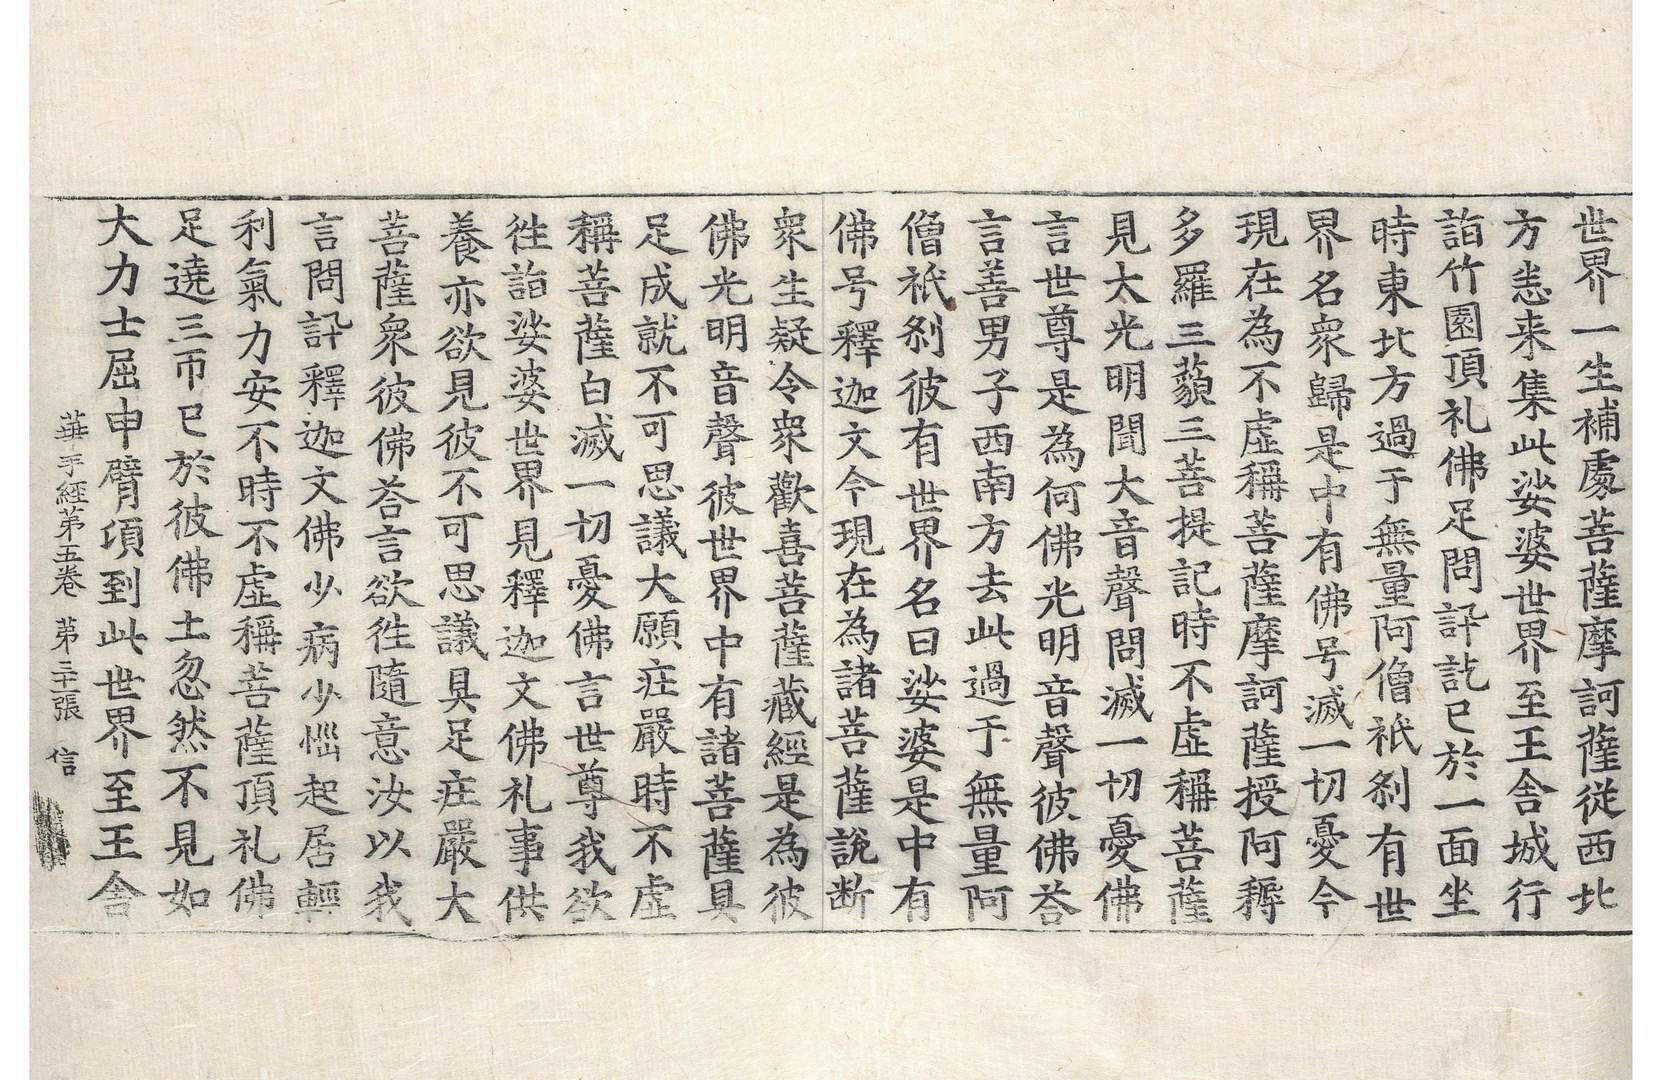 世界一生補處菩薩摩訶薩從西北
方恙来集此娑婆世界至王舍城行
詣竹園頂礼佛足問訊訖已於一面坐
時東北方過于無量阿僧祇刹有世
界名衆歸是中有佛号滅一切憂今
現在為不虛稱菩薩摩訶薩授阿耨
多羅三藐三菩提記時不虛稱菩薩
見大光明聞大音聲問滅一切憂佛
言世尊是為何佛光明音聲彼佛荅
言善男子西南方去此過于無量阿
僧祇刹彼有世界名曰娑婆是中有
佛号釋迦文今現在為諸菩薩說断
衆生疑令衆歡喜菩薩藏經是為彼
佛光明音聲彼世界中有諸菩薩具
足成就不可思議大願庄嚴時不虛
稱菩薩白滅一切憂佛言世尊我欲
徃詣娑婆世界見釋迦文佛礼事供
養亦欲見彼不可思議具足庄嚴大
菩薩衆彼佛荅言欲徃隨意汝以我
言問訊釋迦文佛少病少惱起居輕
利氣力安不時不虛稱菩薩頂礼佛
足遶三帀已於彼佛土忽然不見如
大力士屈申臂項到此世界至王舍
華手經第五卷 第二十張 信